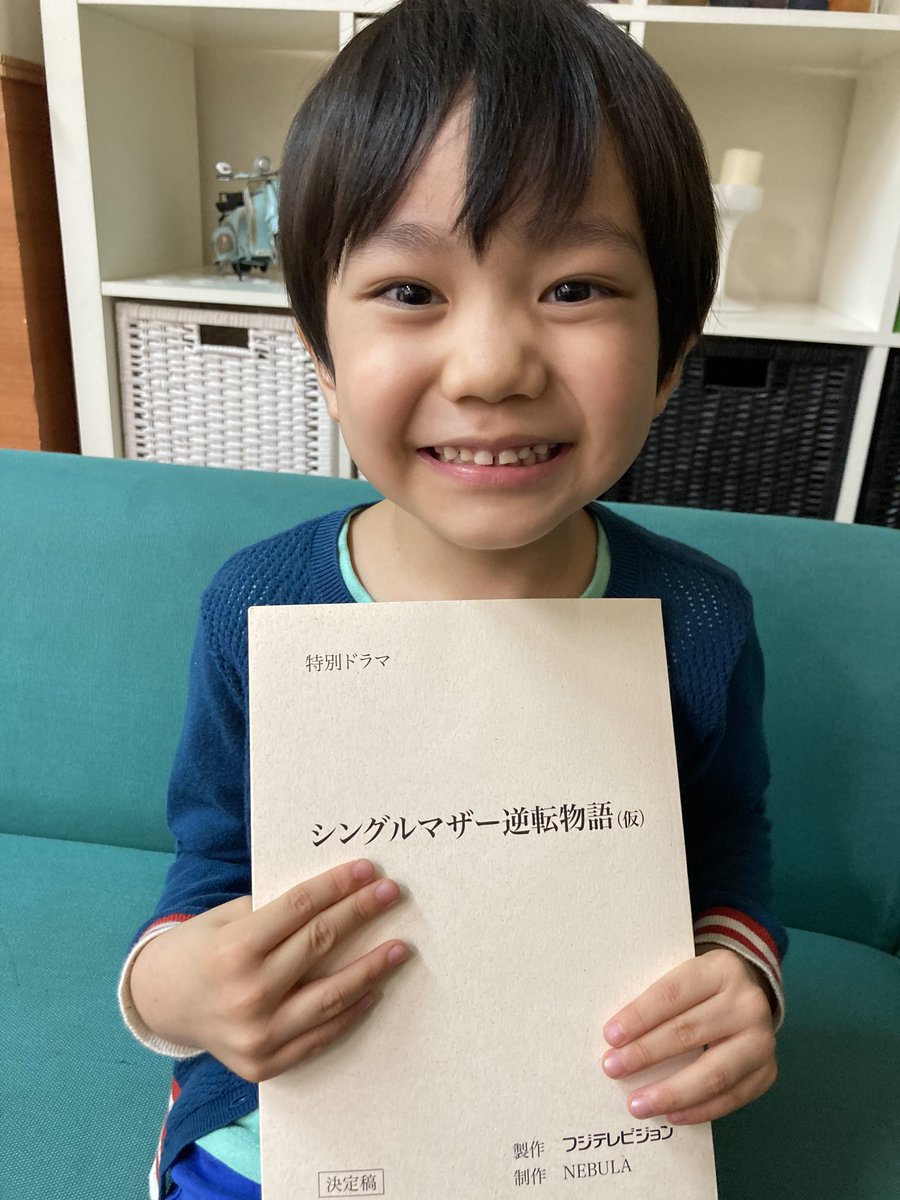 特別ドラマ
シングルマザー逆転物語(仮)
製作 フジテレビジョン
制作 NEBULA
決定稿